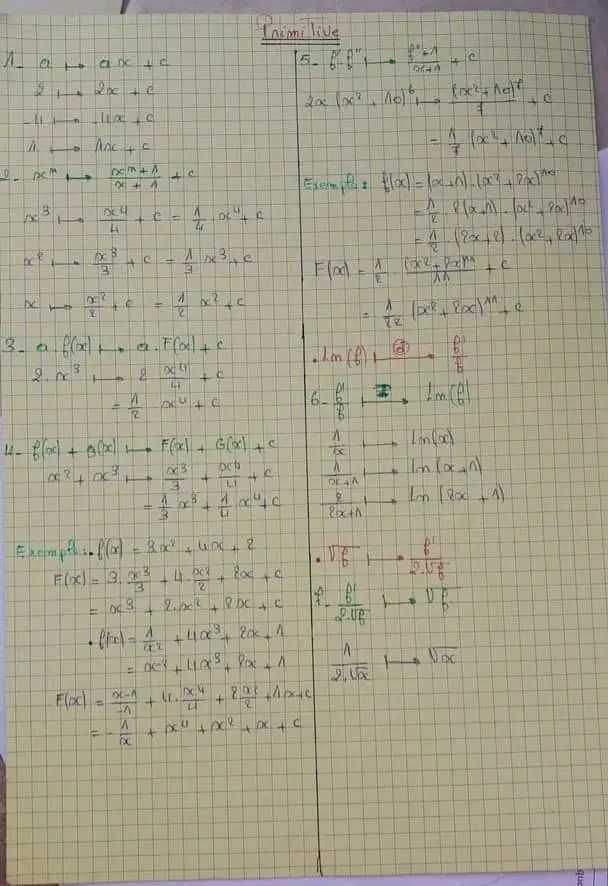 Primitive
1- a ↦ ax + c
2 ↦ 2x + c
-4 ↦ -4x + c
1 ↦ 1x + c
2- xⁿ ↦ (xⁿ⁺¹)/(x+1) + c
x³ ↦ x⁴/4 + c = 1/4 x⁴ + c
x² ↦ x³/3 + c = 1/3 x³ + c
x ↦ x²/2 + c = 1/2 x² + c
3- a.f(x) ↦ a.F(x) + c
2.x³ ↦ 2 x⁴/4 + c
= 1/2 x⁴ + c
4- f(x) + g(x) ↦ F(x) + G(x) + c
x² + x³ ↦ x³/3 + x⁴/4 + c
= 1/3 x³ + 1/4 x⁴ + c
Exemple: . f(x) = 3x² + 4x + 2
F(x) = 3.x³/3 + 4.x²/2 + 2x + c
= x³ + 2.x² + 2x + c
. f(x) = 1/x² + 4x³ + 2x + 1
= x⁻² + 4x³ + 2x + 1
F(x) = x⁻¹/-1 + 4.x⁴/4 + 2x²/2 + 1x + c
= -1/x + x⁴ + x² + x + c
5- f'.fⁿ ↦ (fⁿ⁺¹)/(x+1) + c
2x (x² + 10)⁶ ↦ (x² + 10)⁷/7 + c
= 1/7 (x² + 10)⁷ + c
Exemple: f(x) = (x+1).(x² + 2x)¹⁰
= 1/2 2(x+1).(x² + 2x)¹⁰
= 1/2.(2x+2).(x² + 2x)¹⁰
F(x) = 1/2.(x² + 2x)¹¹/11 + c
= 1/22 (x² + 2x)¹¹ + c
. Ln(f) ↦ f'/f
6- f'/f ↦ Ln(f)
1/x ↦ Ln(x)
1/(x+1) ↦ Ln(x+1)
2/(2x+1) ↦ Ln(2x+1)
. √f ↦ f'/(2.√f)
7- f'/(2.√f) ↦ √f
1/(2.√x) ↦ √x